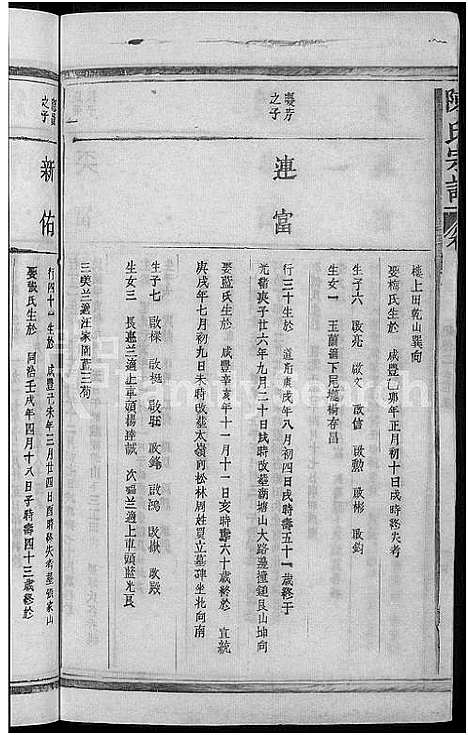 陳氏宗譜
樓上田乾山巽向
娶楊氏生於 咸豐乙卯年正月初十日戌時終失考
生子六 啟亮 啟文 啟信 啟勲 啟彬 啟鈞
生女一 玉蘭適下尾壠楊存昌
之子
連富
行三十生於 道光庚戌年八月初四日戌時壽五十一歲終于
光緒庚子廿六年九月二十日戌時改墓南塘山大路邊撞鐘艮山坤向
娶藍氏生於 咸豐辛亥年十一月十一日亥時壽六十歲終於 宣統
庚戌年七月初九日未時改墓太嶺岡松林周姓買立墓碑坐北向南
生子七 啟樑 啟挺 啟駐 啟銘 啟鴻 啟嶽 啟殿
生女三 長蕙兰適上車頭楊達誠 次福兰適上車頭藍光艮
三美兰適汪家圍藍三苟
之子
新佑
行四十一生於 咸豐己未年三月廿四日酉時終失考墓張家山
娶張氏生於 同治壬戌年四月十八日子時壽四十三歲終於